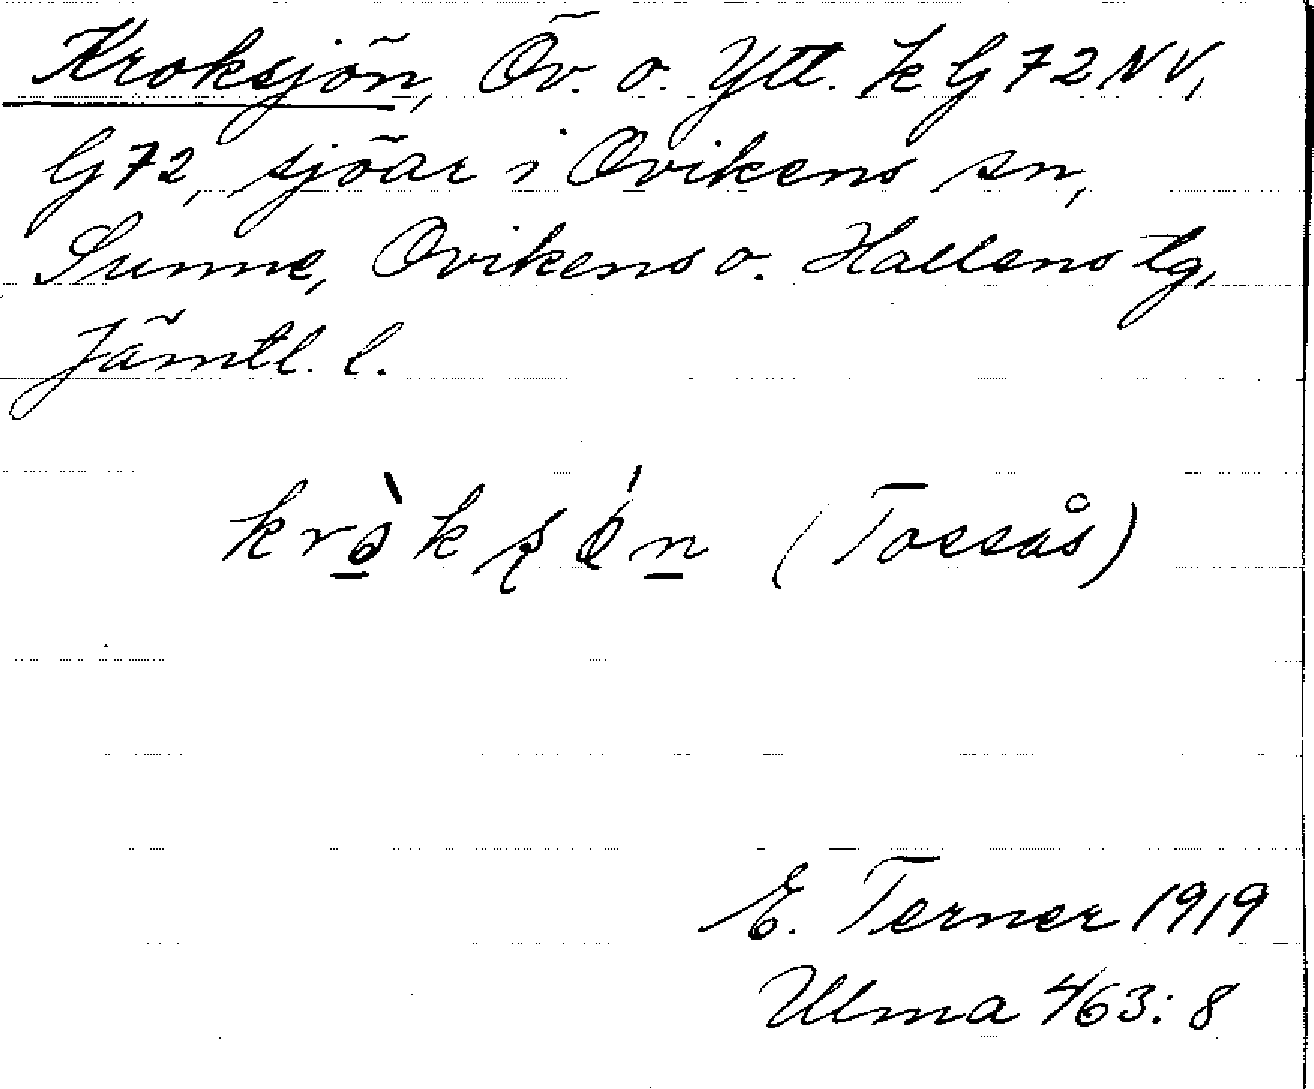 Kroksjön, Öv. o. Ytt. k G72NV,
G72, sjöar i Ovikens sn,
Sunne, Ovikens o. Hallens tg,
Jämtl. l.
(Tossås)
E. Terner 1919
Ulma 463: 8